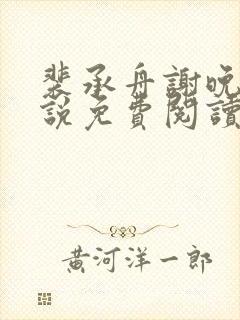 裴承舟謝晚
說免費閱讀
黃河洋一郎